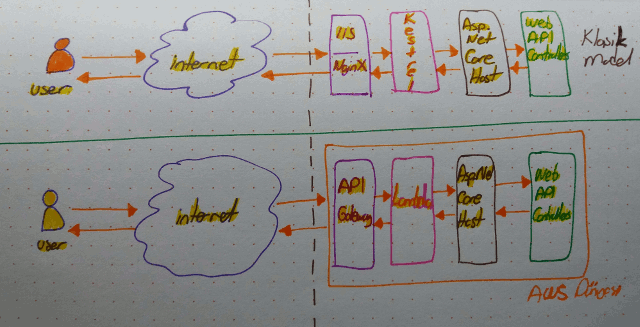 user
internet
IIS
NginX
Kestrel
Asp.
Net
Core
Host
Web
API
Controllers
Klasik
Model
user
internet
API
Gateway
Lambda
Asp.Net
Core
Host
Web
API
Controllers
AWS Dünyası